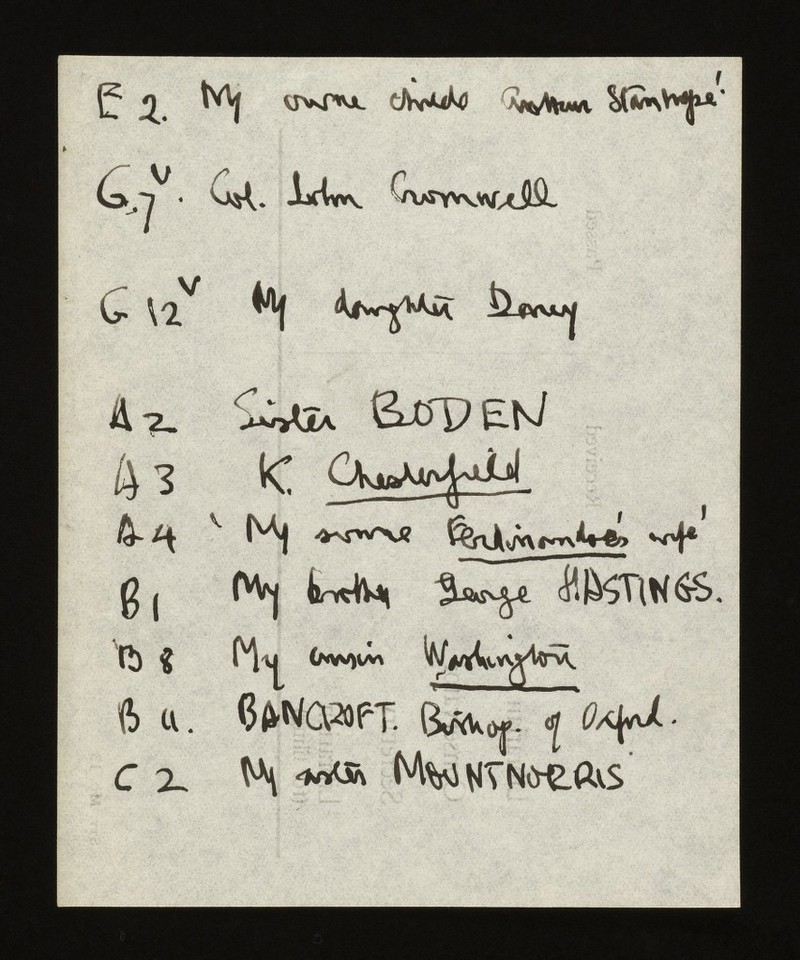 E 2. My owne childe Arthur Stanhope'.
G.7v. Col. John Cromwell
G 12v My daughter Darcy
A 2 Sister BODEN
A 3 K. Chesterfield
A 4 'My sonne Ferdinandoe's wife'
B 1 My brother George HASTINGS.
B 8 My cousin Washington
B 11. BANCROFT. Bishop. of Oxford.
C 2 My sister MOUNTNORRIS